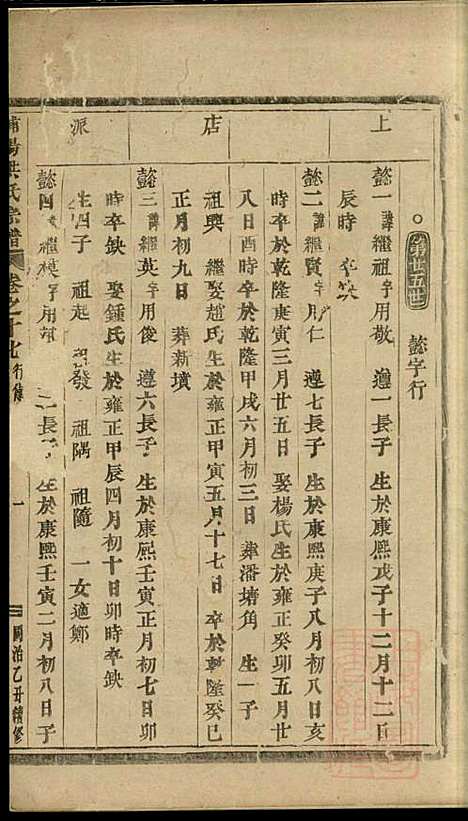 上
店
派
第廿五世 懿字行
懿一諱繼祖字用敬 遵一長子 生於康熙戊子十二月十二日
辰時 卒缺
懿二諱繼賢字用仁 遵七長子 生於康熙庚子八月初八日亥
時卒於乾隆庚寅三月廿五日 娶楊氏生於雍正癸卯五月廿
八日酉時卒於乾隆甲戌六月初三日 葬潘塘角 生一子
祖興 繼娶趙氏生於雍正甲寅五月十七日 卒於乾隆癸巳
正月初九日 葬新墳
懿三諱繼英字用俊 遵六長子 生於康熙壬寅正月初七日卯
時卒缺 娶鍾氏生於雍正甲辰四月初十日卯時卒缺
生四子 祖起 祖發 祖隅 祖隨 一女適鄭
懿四 繼 字用 長子 生於康熙壬寅二月初八日子
浦陽洪氏宗譜 卷之十七 行傳 一 同治乙丑續修